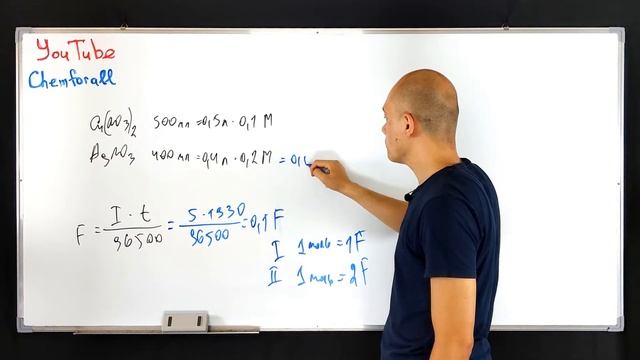 YouTube
Chemforall
Cu(NO3)2 500мл = 0,5л · 0,1 M
AgNO3 400мл = 0,4л · 0,2 M = 0,
F = I · t / 96500 = 5 · 1930 / 96500 = 0,1 F
I 1 моль = 1F
II 1 моль = 2F